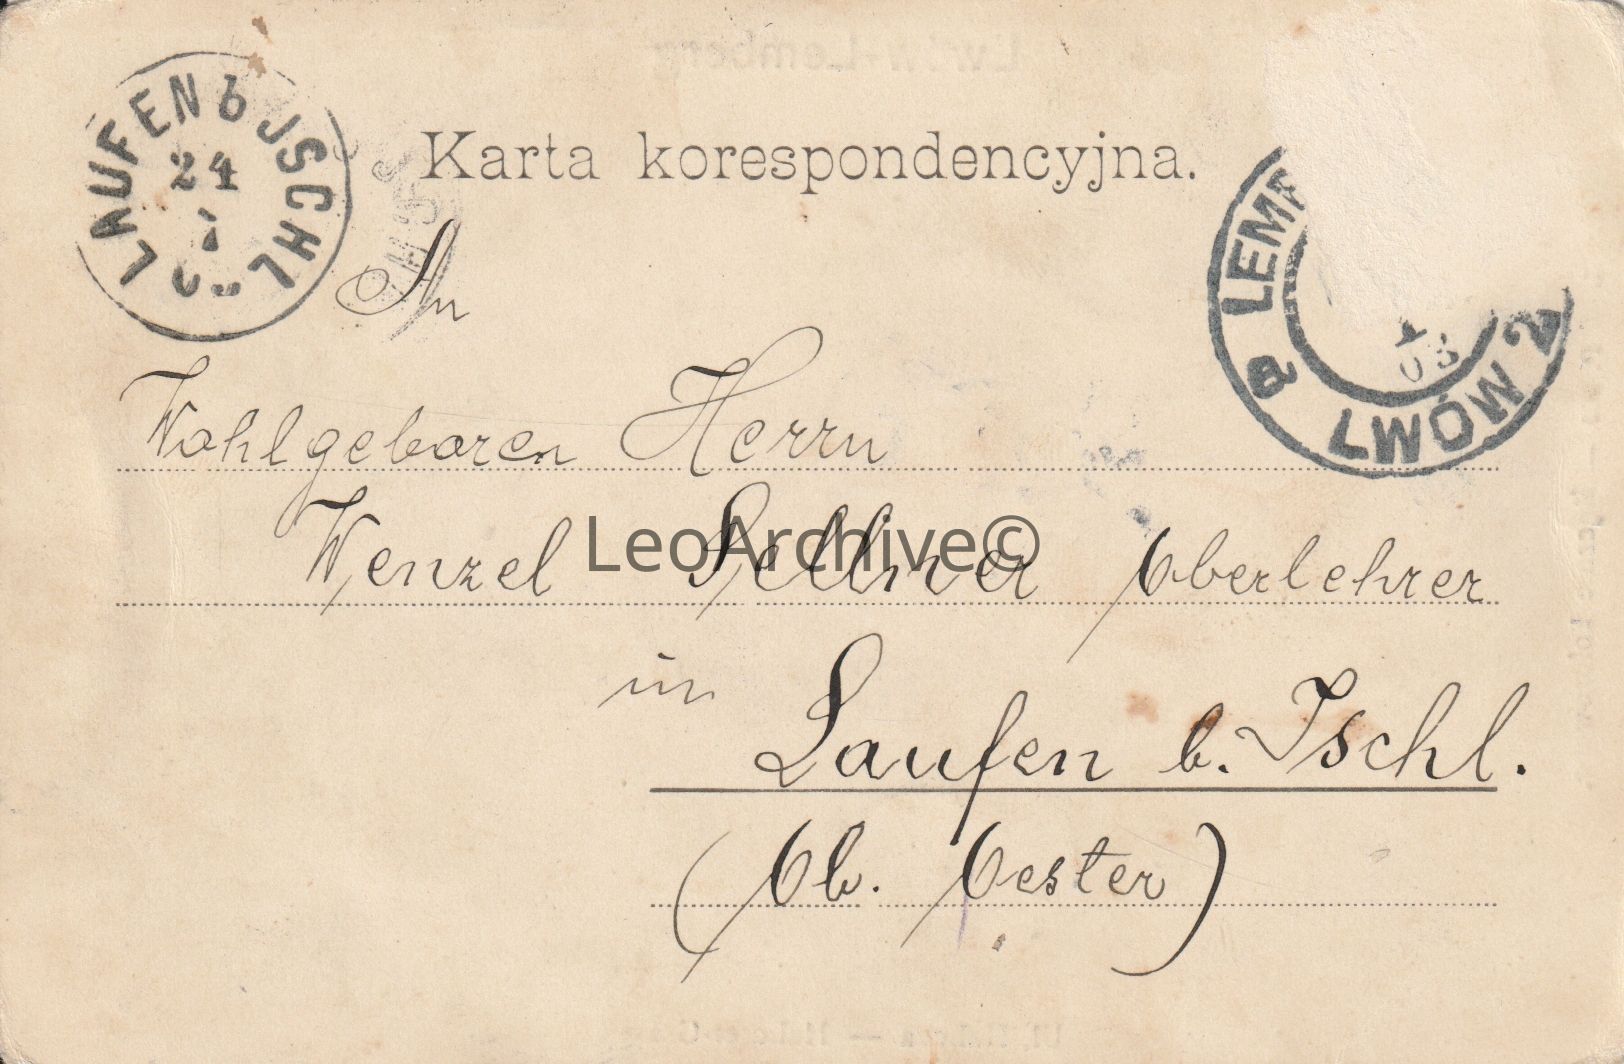 LAUFEN b JSCHL
24
Karta korespondencyjna.
LEMB
LWÓW 2
a
03
An
Wohlgeboren Herrn
Wenzel Sellner Oberlehrer
LeoArchive©
in
Laufen b. Ischl.
(Ob. Oester)